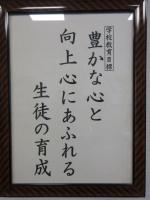 学校教育目標
豊かな心と
向上心にあふれる
生徒の育成